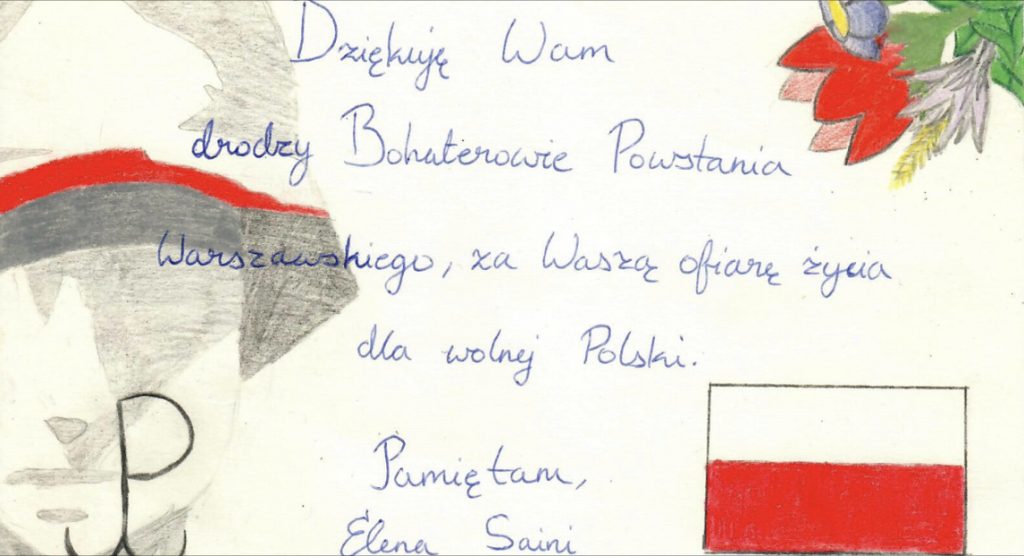 Dziękuję Wam
drodzy Bohaterowie Powstania
Warszawskiego, za Waszą ofiarę życia
dla wolnej Polski.
Pamiętam,
Elena Saini